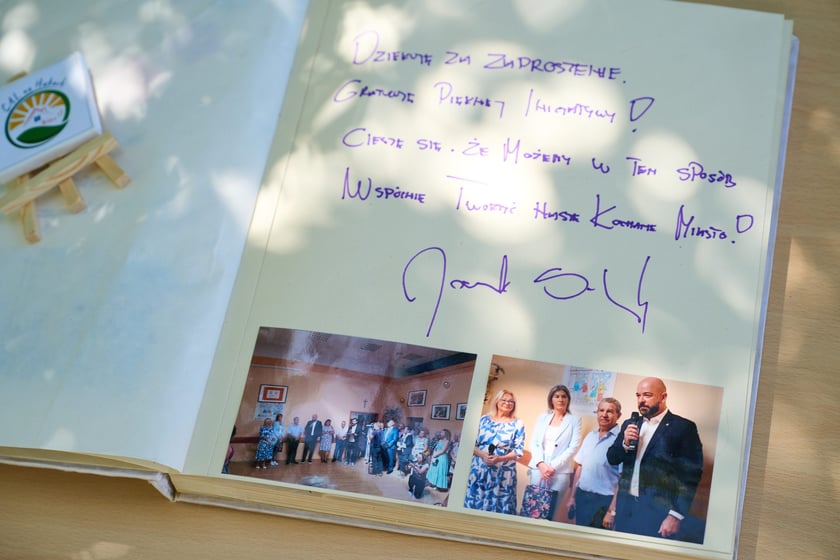 CAL na Hubach
DZIĘKUJĘ ZA ZAPROSZENIE.
GRATULUJĘ PIĘKNEJ INICJATYWY!
CIESZĘ SIĘ, ŻE MOŻEMY W TEN SPOSÓB
WSPÓLNIE TWORZYĆ NASZE KOCHANE MIASTO!